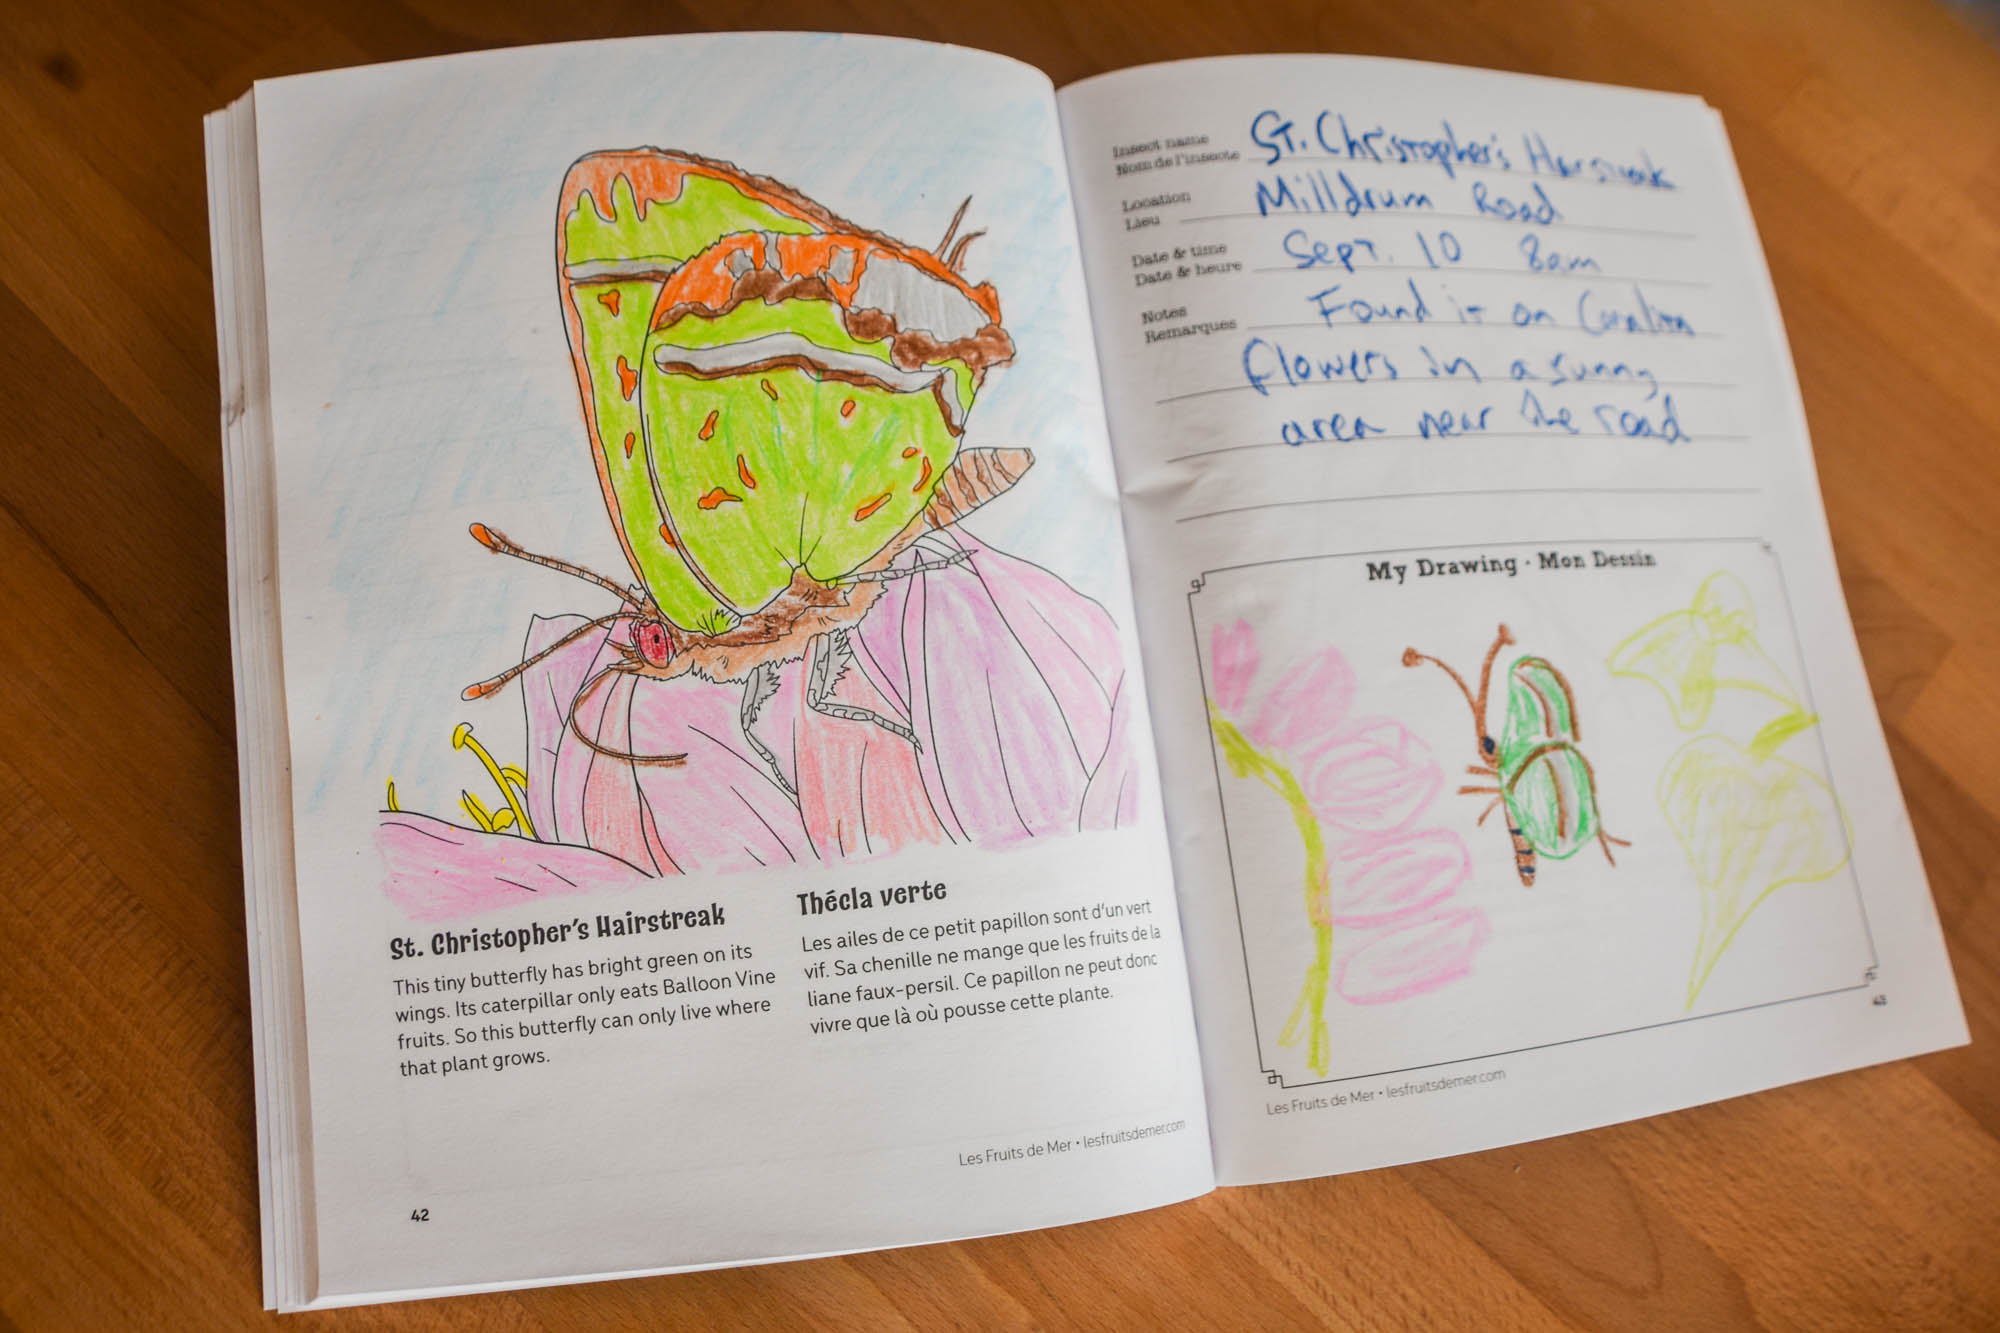 St. Christopher's Hairstreak
This tiny butterfly has bright green on its
wings. Its caterpillar only eats Balloon Vine
fruits. So this butterfly can only live where
that plant grows.
Thécla verte
Les ailes de ce petit papillon sont d'un vert
vif. Sa chenille ne mange que les fruits de la
liane faux-persil. Ce papillon ne peut donc
vivre que là où pousse cette plante.
Les Fruits de Mer • lesfruitsdemer.com
42
Insect name
Nom de l'insecte
St. Christopher's Hairstreak
Location
Lieu
Milldrum Road
Date & time
Date & heure
Sept. 10 8am
Notes
Remarques
Found it on Coralita
flowers in a sunny
area near the road
My Drawing · Mon Dessin
43
Les Fruits de Mer • lesfruitsdemer.com